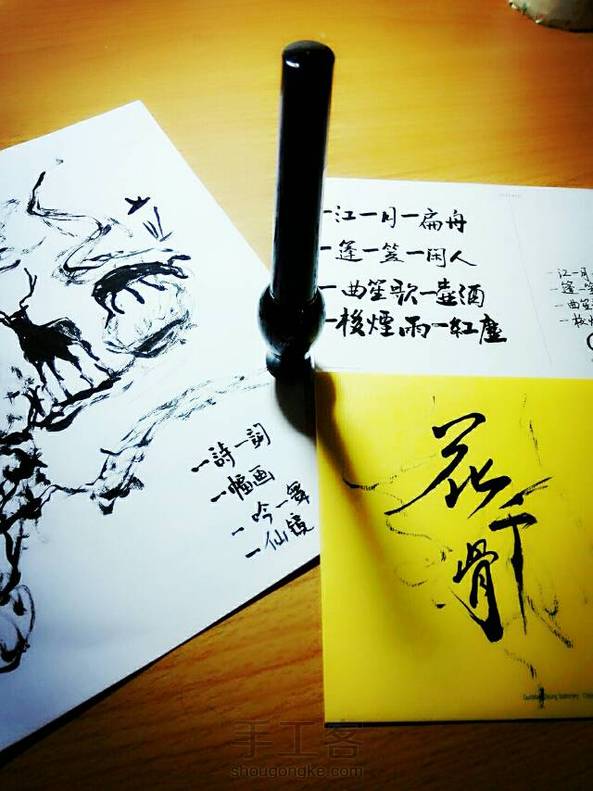 一江一月一扁舟
一篷一笠一闲人
一曲笙歌一壺酒
一梭煙雨一紅塵
一江一月
一篷一笠
一曲笙
一梭
一詩一詞
一幅画
一吟一舞
一仙镜
花千骨
手工客
shougongke.com